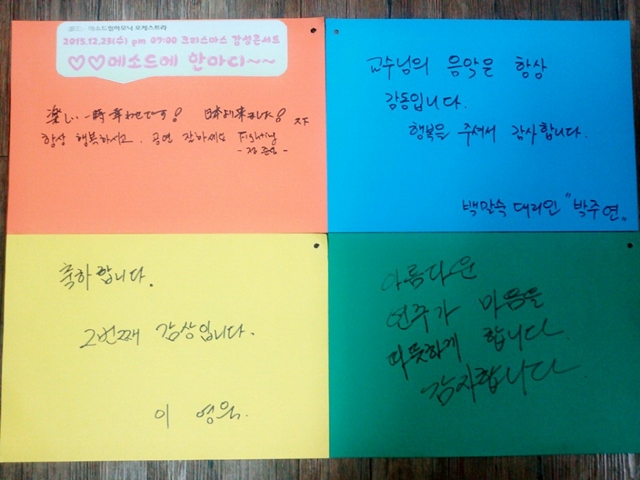 메소드필하모닉 오케스트라
2015.12.23(수) pm 07:00 크리스마스 감성콘서트
♡♡메소드에 한마디~~
楽しい 一時 幸せです! 日本より来ました!
항상 행복하시고. 공연 잘하세요 Fighting
교수님의 음악은 항상
감동입니다.
행복을 주셔서 감사합니다.
백말숙 대리인 "박주연"
축하합니다.
2번째 감상입니다.
이 영욱.
아름다운
연주가 마음을
따뜻하게 합니다
감사합니다